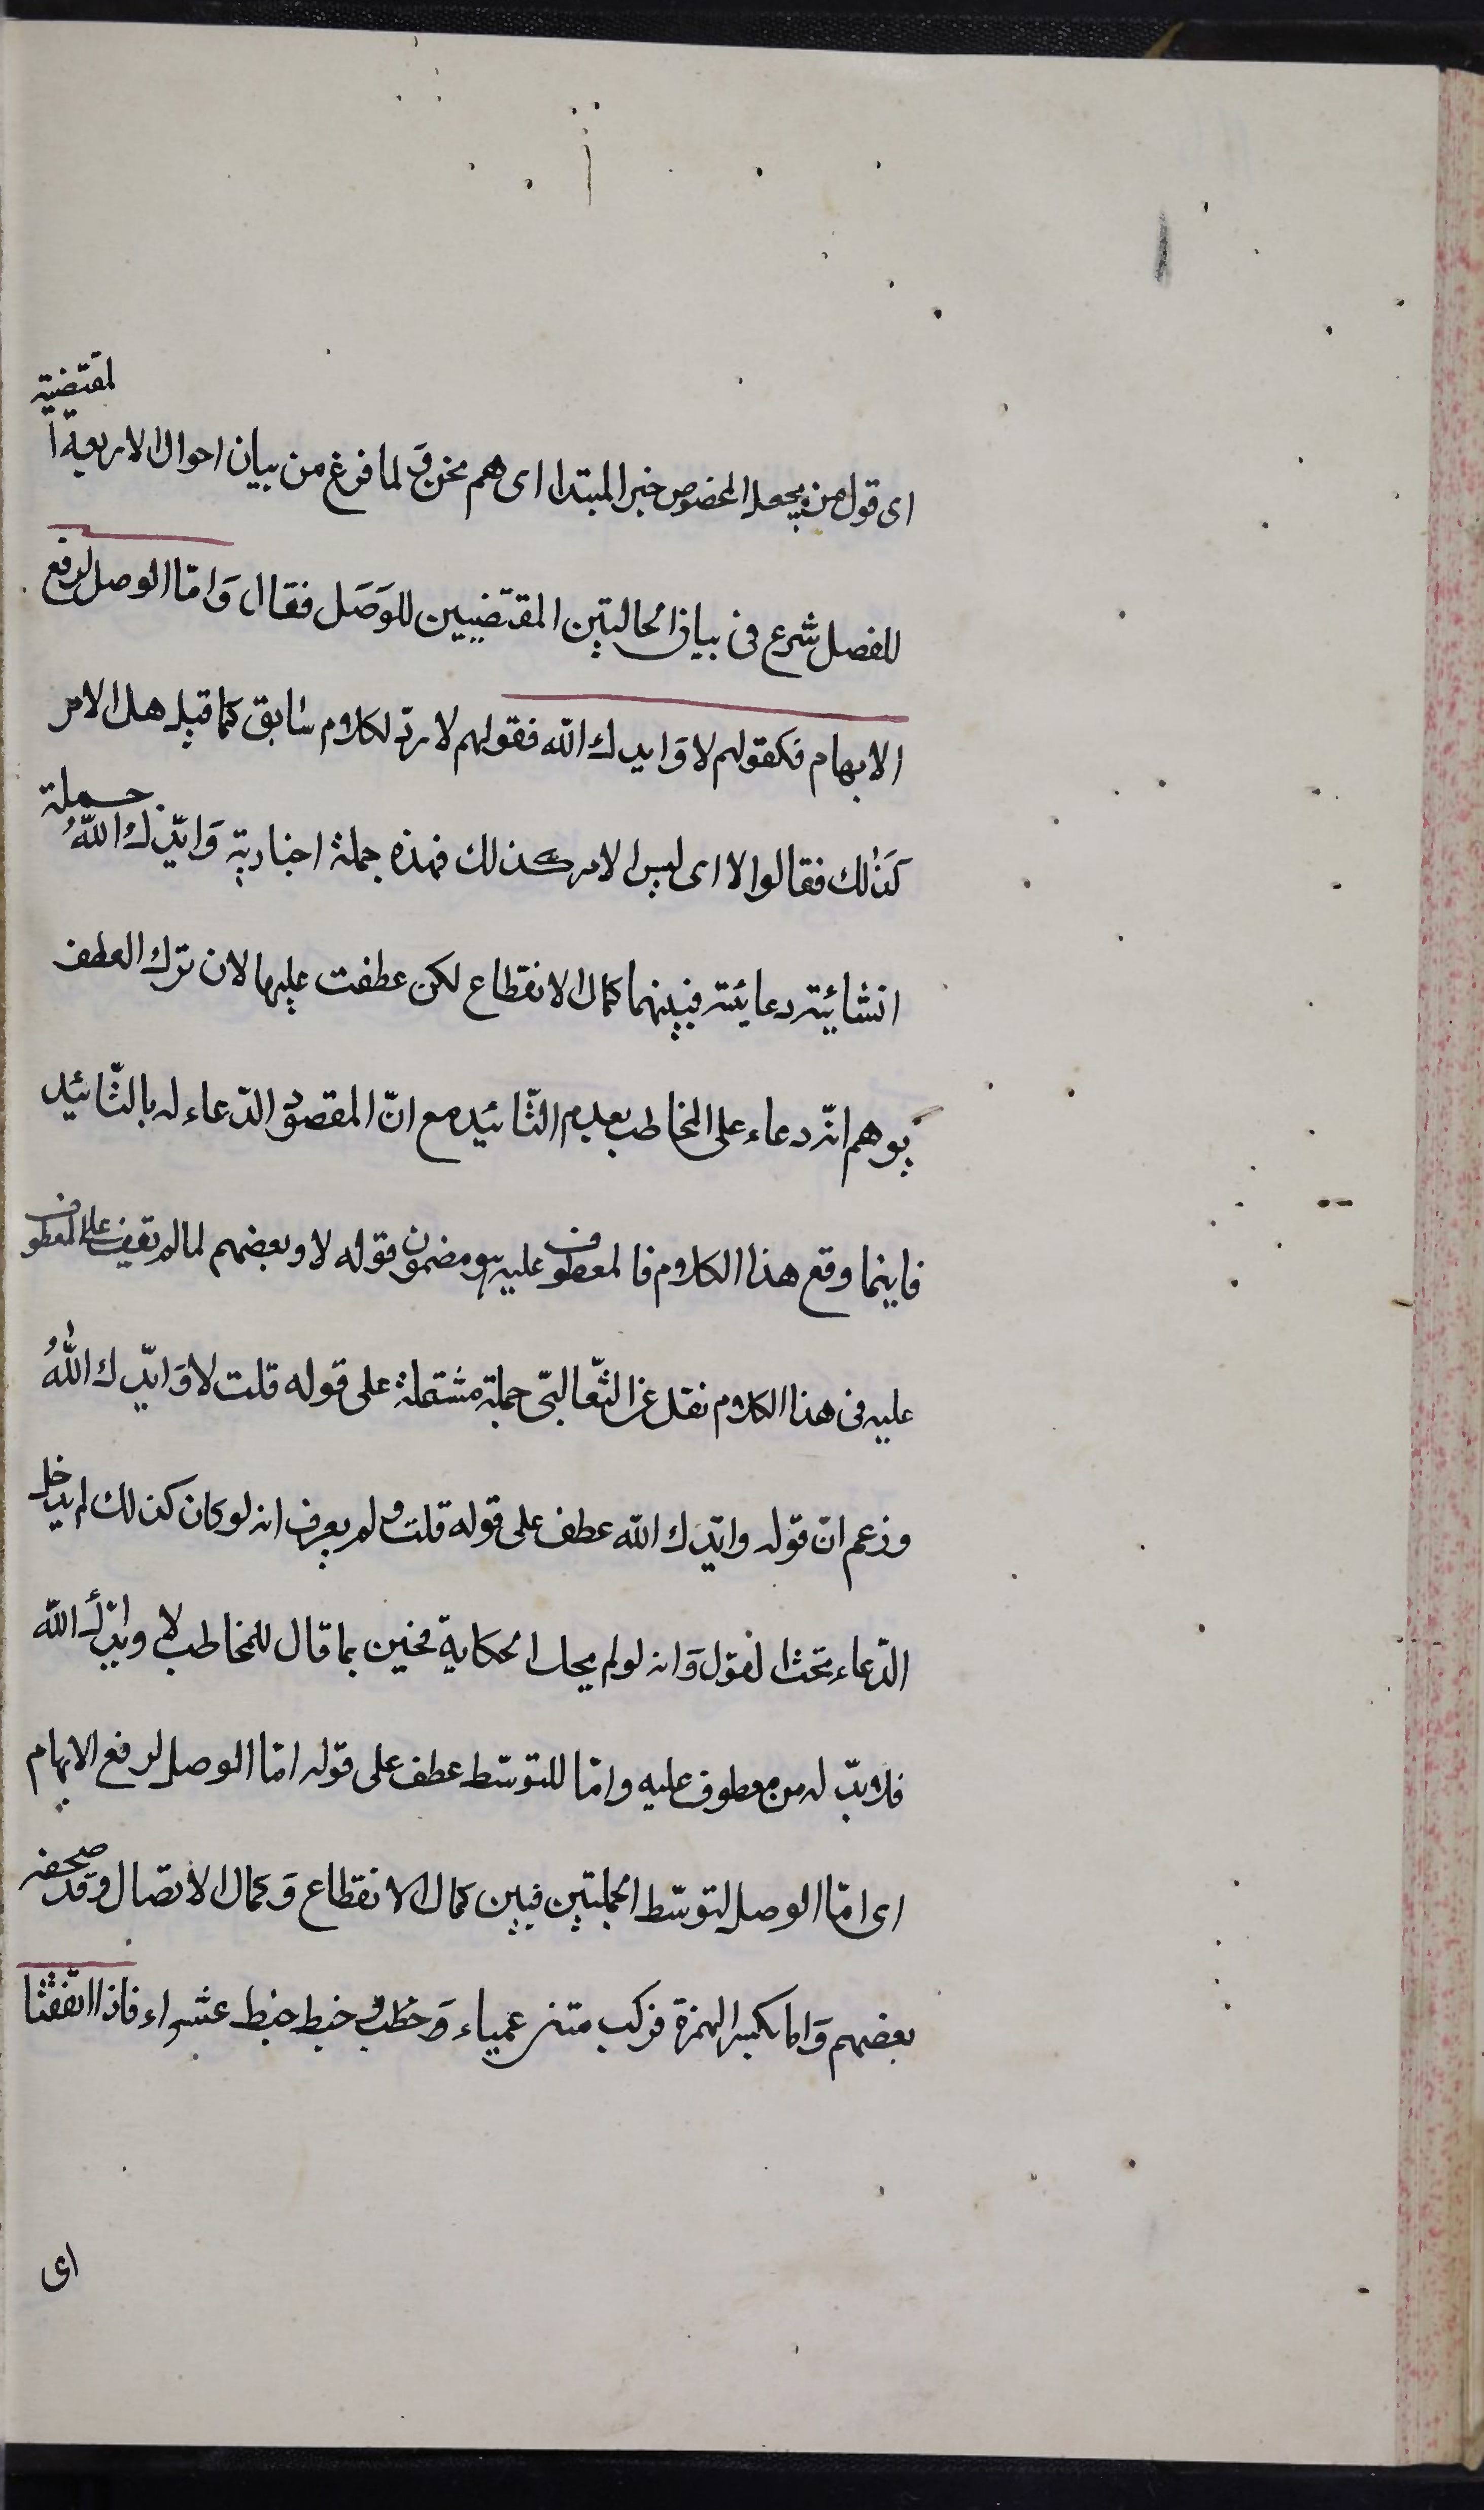 اى قول من يجعل المخصوص خبر المبتدا اى هم نحن ولما فرغ من بيان احوال الاربعة المقتضية
للفصل شرع فى بيان الحالتين المقتضيين للوَصَل فقال وَامّا الوصل لرفع
الايهام فكقولهم لا وَايدك الله فقولهم لا ردّ لكلام سابق كما قيل هل الامر
كذلك فقالوا لا اى ليس الامر كذلك فهذه جملة اخبارية وَايّدك اللّهُ جملة
انشائيّة دعائيّة فبينهما كمال الانقطاع لكن عطفت عليها لان ترك العطف
يوهم انّه دعاء على المخاطب بعدم التّائيد مع انّ المقصود الدّعاء له بالتّائيد
فاينما وقع هذا الكلام فالمعطوف عليه هو مضمون قوله لا وبعضهم لما لم يقف على المعطوف
عليه فى هذا الكلام نقل عن الثّعالبىّ جملة مشتملة على قوله قلت لا وَايّدك اللّهُ
وزعم انّ قوله وايّدك الله عطف على قوله قلت ولم يعرف انه لو كان كذلك لم يدخل
الدّعاء تحت القول وَانه لو لم يحك الحكاية فحين ما قال للمخاطب لا وايّدك الله
فلا بدّ له من معطوف عليه وامّا للتوسّط عطف على قوله امّا الوصل لرفع الايهام
اى امّا الوصل لتوسّط الجملتين فبين كمال الانقطاع وَكمال الاتصال وقد صحفه
بعضهم وَاما بكسر الهمزة فركب متن عمياء وَخبط خبط عشواء فاذا اتّفقتا
اى